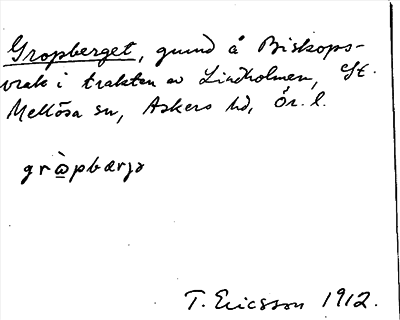 Gropberget, grund å Biskops-
vrak i trakten av Lindholmen, St.
Mellösa sn, Askers hd, Ör. l.
grὼ̲pbærjə
T. Ericsson 1912.